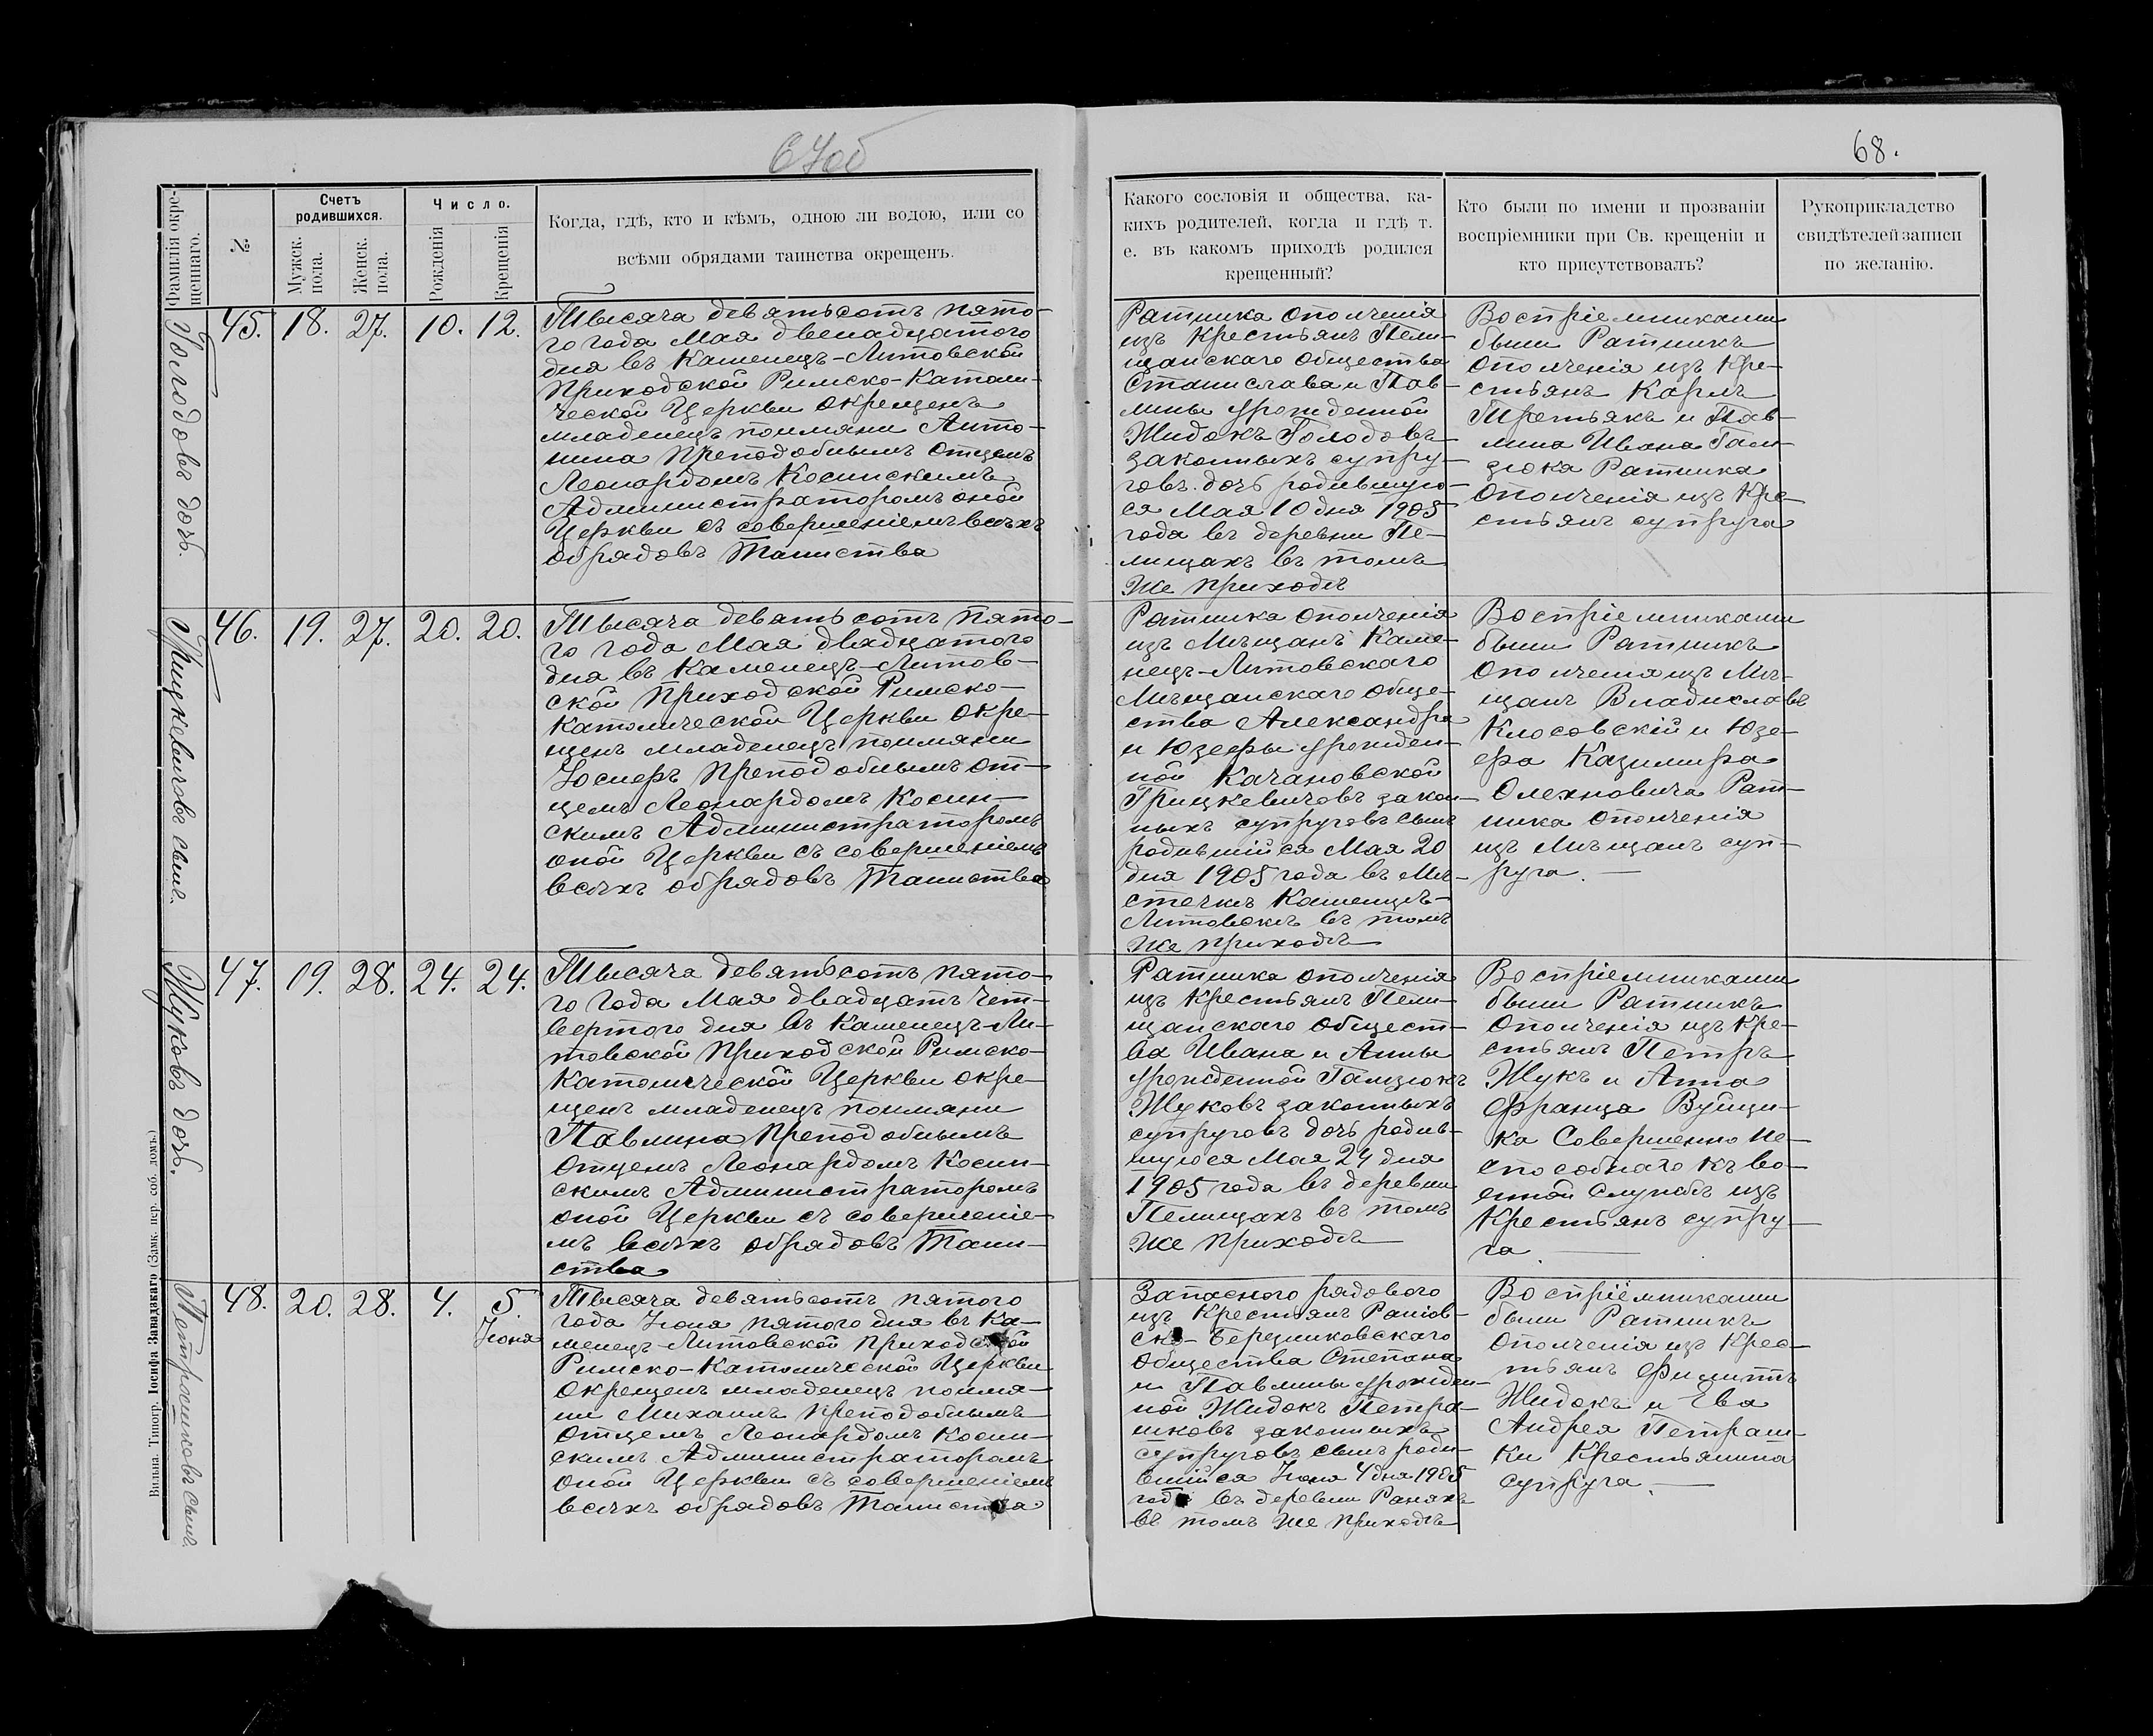 67об
68.
Фамилія окре-
щеннаго.
№
Счетъ
родившихся.
Мужск.
пола.
Женск.
пола.
Число.
Рожденія
Крещенія
Когда, гдѣ, кто и кѣмъ, одною ли водою, или со
всѣми обрядами таинства окрещенъ.
Какого сословія и общества, ка-
кихъ родителей, когда и гдѣ т.
е. въ какомъ приходѣ родился
крещенный?
Кто были по имени и прозванiи
воспріемники при Св. крещеніи и
кто присутствовалъ?
Рукоприкладство
свидѣтелей записи
по желанію.
Голодовъ дочь.
45. 18. 27. 10. 12.
Тысяча девятьсотъ пято-
го года Мая двенадцатого
дня въ Каменецъ-Литовской
Приходской Римско-Катали-
ческой Церкви окрещенъ
младенецъ поимяни Анто-
нина Преподобнымъ Отцемъ
Леонардомъ Косинскимъ
Администраторомъ оной
Церкви съ совершеніемъ всѣхъ
обрядовъ Таинства
Ратника ополченія
изъ Крестьянъ Пели-
щанскаго Общества
Станислава и Пав-
лины урожденной
Жидокъ Голодовъ
законныхъ супру-
говъ дочь родившую-
ся Мая 10 дня 1905
года въ деревни Пе-
лищахъ въ томъ
же приходѣ
Воспріемниками
были Ратникъ
ополченія изъ Кре-
стьянъ Карлъ
Третьякъ и Пав-
лина Ивана Гам-
зюка Ратника
ополченія изъ Кре-
стьянъ супруга
Грицкевичовъ сынъ.
46. 19. 27. 20. 20.
Тысяча девятьсотъ пято-
го года Мая двадцатого
дня въ Каменецъ-Литов-
ской Приходской Римско-
Католической Церкви окре-
щенъ младенецъ поимяни
Іосифъ Преподобнымъ От-
цемъ Леонардомъ Косин-
скимъ Администраторомъ
оной Церкви съ совершеніемъ
всѣхъ обрядовъ Таинства
Ратника ополченія
изъ Мѣщанъ Каме-
нецъ-Литовскаго
Мѣщанскаго обще-
ства Александра
и Юзефы урожден-
ной Качановской
Грицкевичовъ закон-
ныхъ супруговъ сынъ
родившійся Мая 20
дня 1905 года въ Мѣ-
стечкѣ Каменцѣ-
Литовскѣ въ томъ
же приходѣ
Воспріемниками
были Ратникъ
Ополченія изъ Мѣ-
щанъ Владиславъ
Клосовскій и Юзе-
фа Казимира
Олехновича Рат-
ника ополченія
изъ Мѣщанъ суп-
руга.
Жуковъ дочь.
47. 19. 28. 24. 24.
Тысяча девятьсотъ пято-
го года Мая двадцать чет-
вертого дня въ Каменецъ-Ли-
товской Приходской Римско-
Католической Церкви окре-
щенъ младенецъ поимяни
Павлина Преподобнымъ
Отцемъ Леонардомъ Косин-
скимъ Администраторомъ
оной Церкви съ совершеніе-
мъ всѣхъ обрядовъ Таин-
ства
Ратника ополченія
изъ Крестьянъ Пели-
щанскаго Общест-
ва Ивана и Анны
урожденной Гамзюкъ
Жуковъ законныхъ
супруговъ дочь родив-
шуюся Мая 24 дня
1905 года въ деревни
Пелищахъ въ томъ
же приходѣ
Воспріемниками
были Ратникъ
Ополченія изъ Кре-
стьянъ Петръ
Жукъ и Анна
Франца Вуйци-
ка Совершенно не-
способнаго къ во-
енной Службѣ изъ
Крестьянъ супру-
га.
Петрашковъ сынъ.
48. 20. 28. 4. 5.
Іюня
Тысяча девятьсотъ пятого
года Іюня пятого дня въ Ка-
менецъ-Литовской Приходской
Римско-Католической Церкви
Окрещенъ младенецъ поимя-
ни Михаилъ Преподобнымъ
Отцемъ Леонардомъ Косин-
скимъ Администраторомъ
оной Церкви съ совершеніемъ
всѣхъ обрядовъ Таинства
Запасного рядового
изъ Крестьянъ
Общества Степана
и Павлины урожден-
ной Жидокъ Петра-
шковъ законныхъ
супруговъ сынъ роди-
вшійся Іюня 4 дня 1905
года въ деревни
въ томъ же приходѣ
Воспріемниками
были Ратникъ
Ополченія изъ Крес-
тьянъ Филиппъ
Жидокъ и Ева
Андрея Петраш-
ки Крестьянина
супруга.
Вильна. Типогр. Іосифа Завадзкаго (Замк. пер. соб. домъ.)